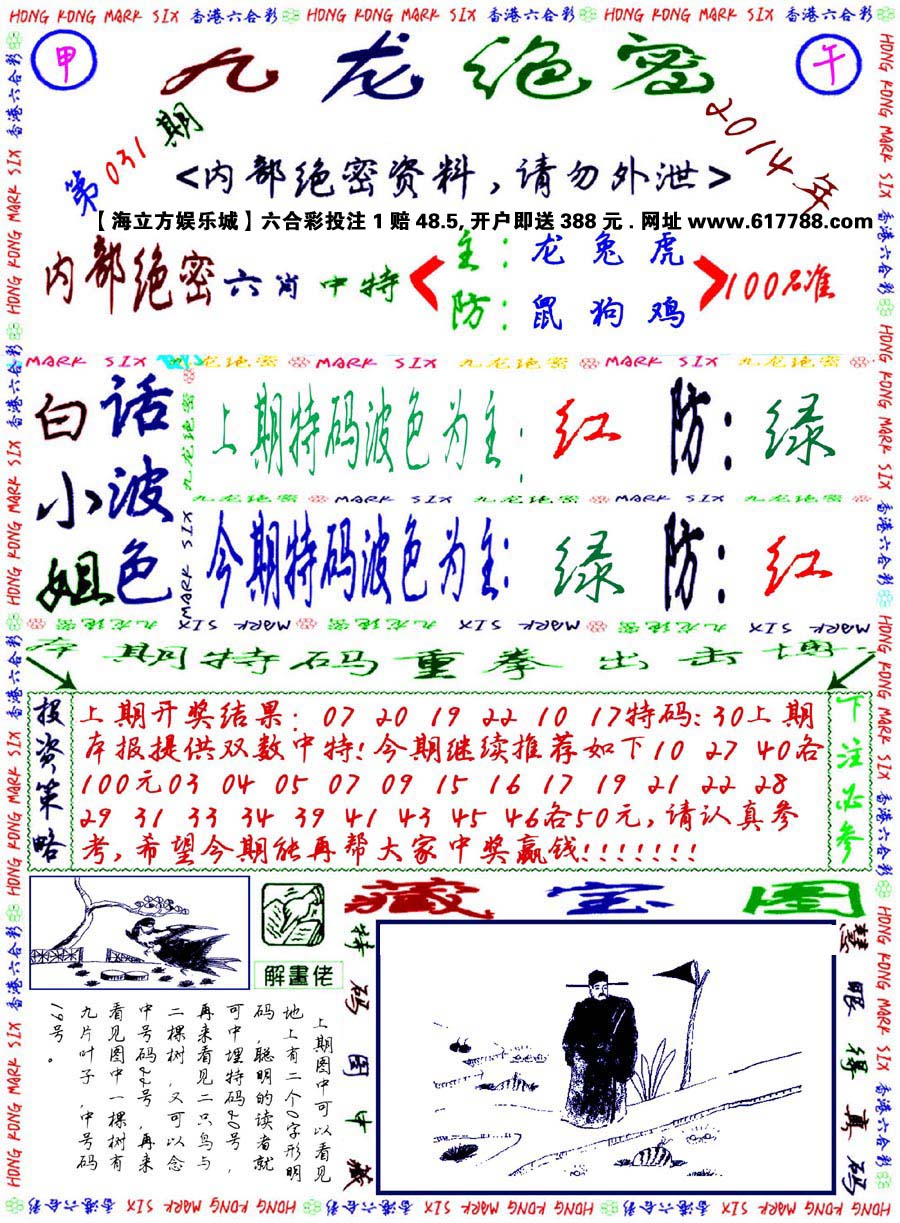 HONG KONG MARK SIX 香港六合彩 HONG KONG MARK SIX 香港六合彩 HONG KONG MARK SIX 香港六合彩
甲
九龙绝密
午
第031期
2014年
<内部绝密资料,请勿外泄>
【海立方娱乐城】六合彩投注1赔48.5,开户即送388元.网址www.617788.com
内部绝密六肖中特
主:龙兔虎
防:鼠狗鸡
100%准
MARK SIX 九龙绝密 MARK SIX 九龙绝密 MARK SIX 九龙绝密
白话
小波
姐色
上期特码波色为主:红 防:绿
九龙绝密 MARK SIX 九龙绝密 MARK SIX 九龙绝密
今期特码波色为主:绿 防:红
九龙绝密
MARK SIX
MARK SIX 九龙绝密 MARK SIX 九龙绝密 MARK SIX 九龙绝密
本期特码重拳出击博
投资策略
上期开奖结果:07 20 19 22 10 17特码:30上期
本报提供双数中特!今期继续推荐如下10 27 40各
100元03 04 05 07 09 15 16 17 19 21 22 28
29 31 33 34 39 41 43 45 46各50元,请认真参
考,希望今期能再帮大家中奖赢钱!!!!!!!
下注必参
解畫佬
藏宝图
特码图中藏
慧眼得真码
上期图中可以看见
地上有二个0字形明
码,聪明的读者就
可中埋特码20号,
再来看见二只鸟与
二棵树,又可以念
中号码22号,再来
看见图中一棵树有
九片叶子,中号码
19号。
HONG KONG MARK SIX 香港六合彩 HONG KONG MARK SIX 香港六合彩 HONG KONG MARK SIX 香港六合彩